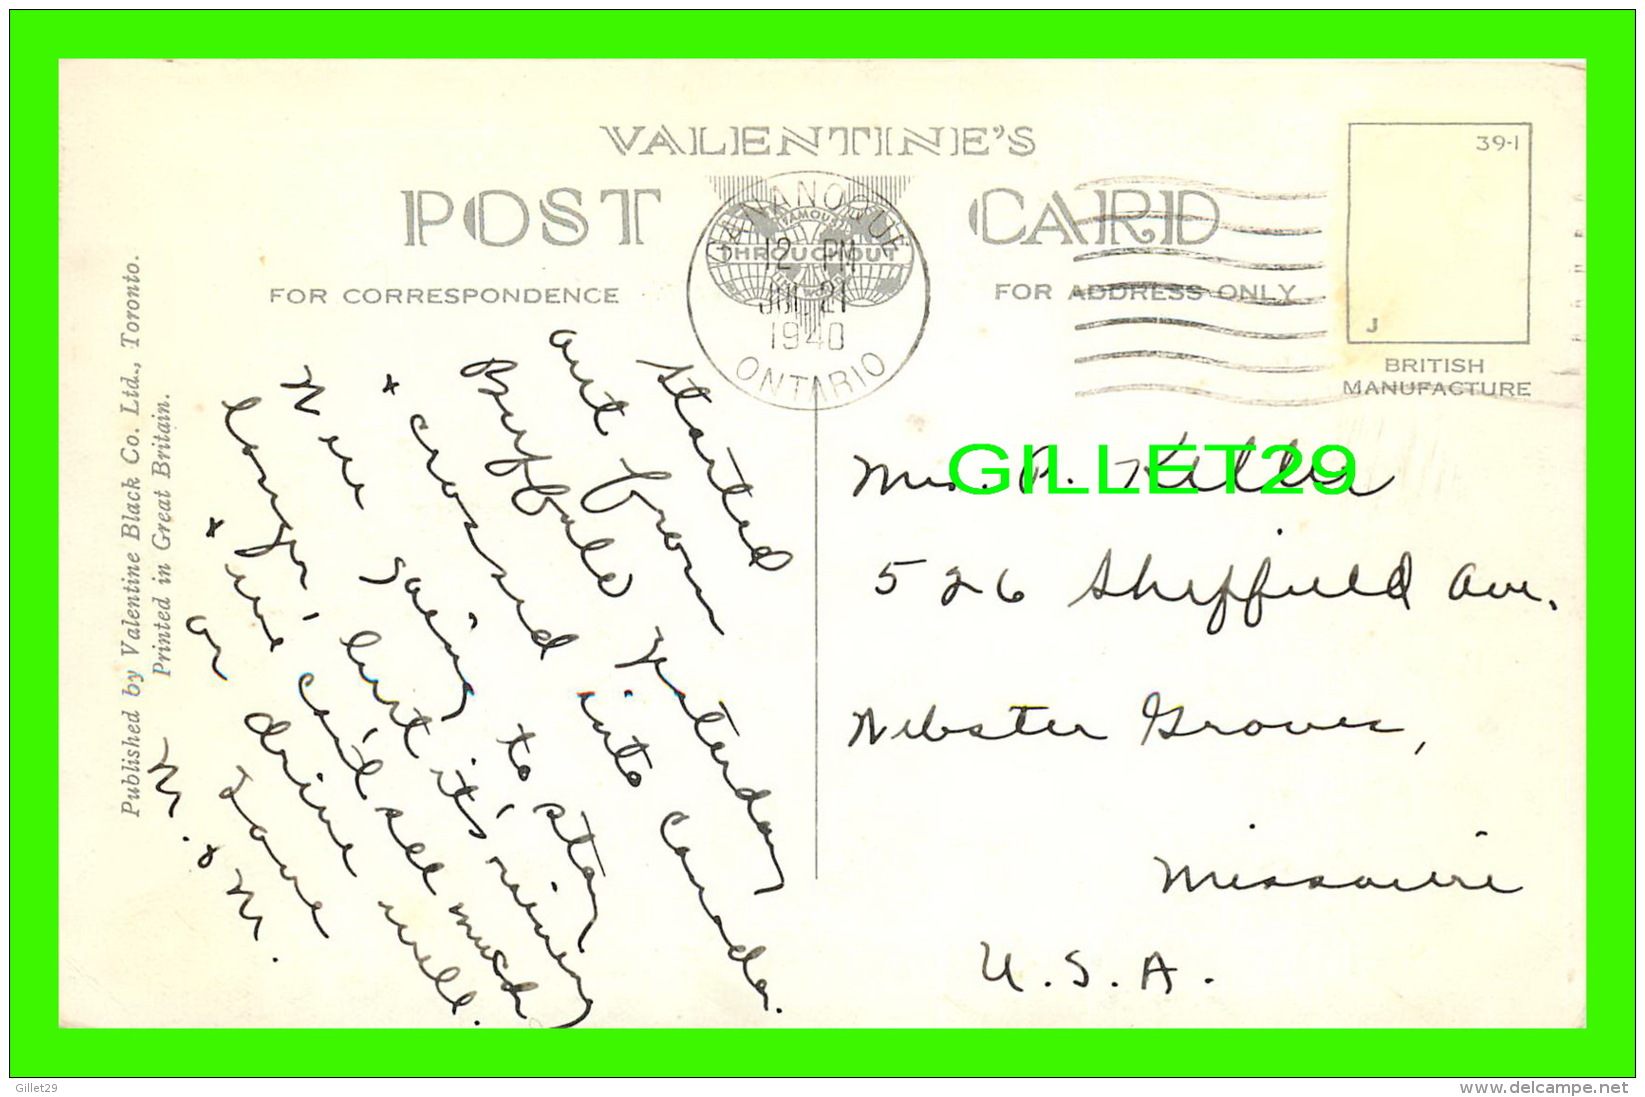 VALENTINE'S
POST CARD
FAMOUS
THROUGHOUT
THE WORLD
GANANOQUE
12 PM
JUL 21
1940
ONTARIO
FOR CORRESPONDENCE
FOR ADDRESS ONLY
39-1
J
BRITISH
MANUFACTURE
Published by Valentine Black Co. Ltd., Toronto.
Printed in Great Britain.
Started
out from
Buffalo yesterday
+ crossed into Canada.
Were going to stay
longer but it's raining
+ we can't see much
or drive well.
Love
M. + M.
Mrs. P. Keller
526 Sheffield Ave.
Webster Groves,
Missouri
U.S.A.
GILLET29
Gillet29
www.delcampe.net